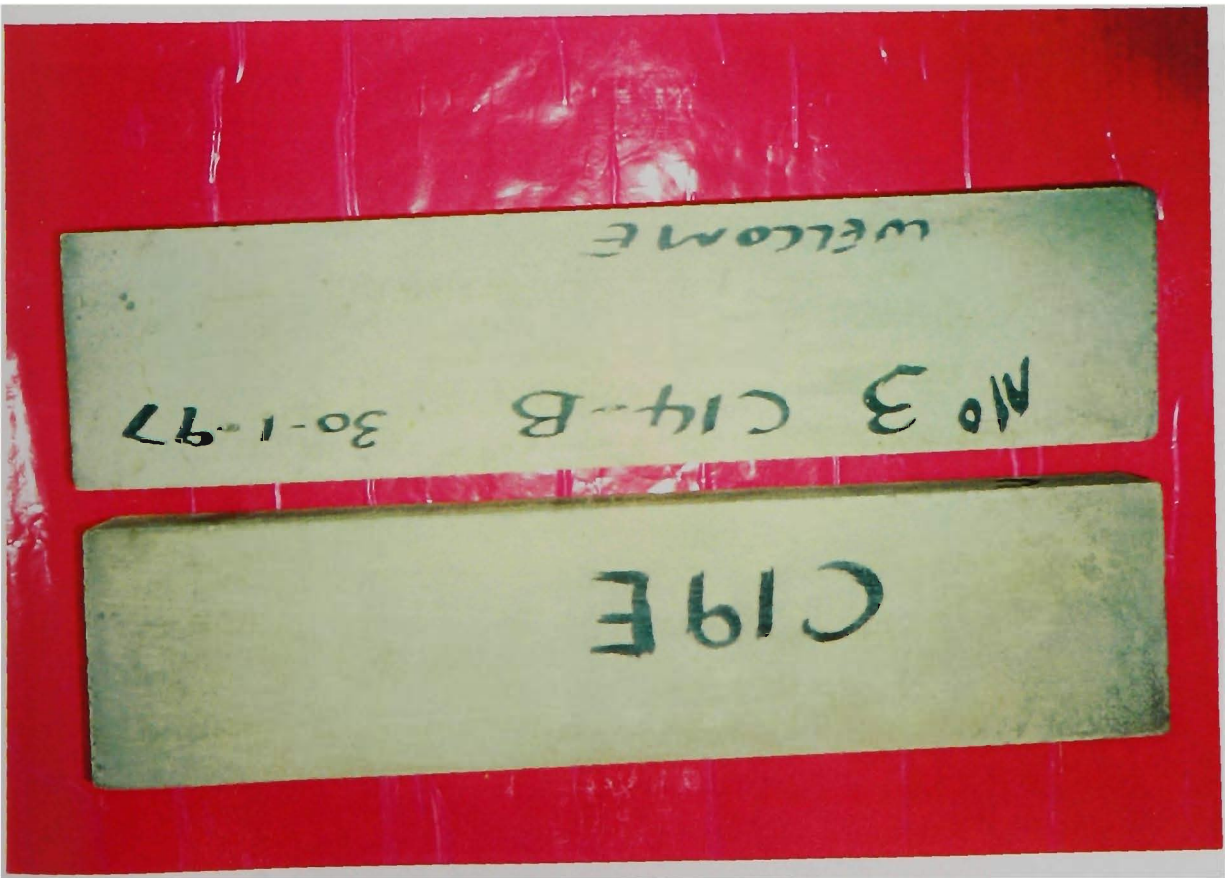 C19E
No 3 C14-B 30-1-97
WELCOME